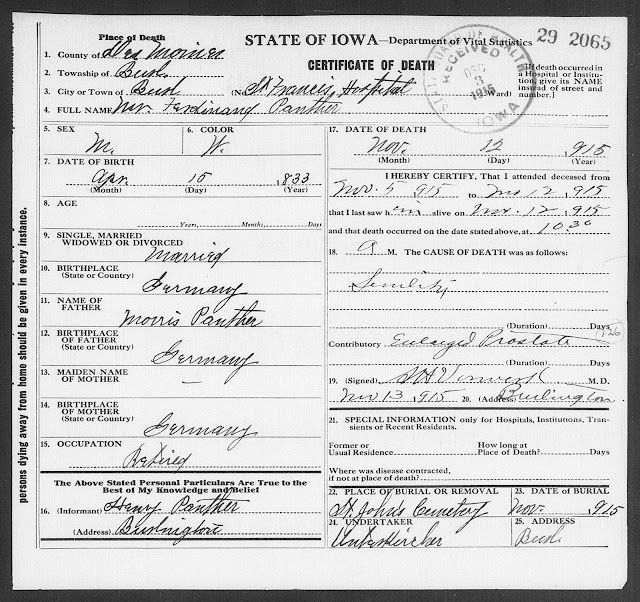 Place of Death
STATE OF IOWA—Department of Vital Statistics 29 2065
1. County of Des Moines
CERTIFICATE OF DEATH
[If death occurred in a Hospital or Institution, give its NAME instead of street and number.]
STATE BOARD OF HEALTH RECEIVED DEC 3 1915 IOWA
2. Township of Burl.
3. City or Town of Burl (No. St Francis Hospital
4. FULL NAME Mr. Ferdinand Panther
5. SEX M.
6. COLOR W.
7. DATE OF BIRTH
Apr. 15 1833
(Month) (Day) (Year)
8. AGE
Years, Months, Days
9. SINGLE, MARRIED
WIDOWED OR DIVORCED
Married
10. BIRTHPLACE
(State or Country)
Germany
11. NAME OF
FATHER
Morris Panther
12. BIRTHPLACE
OF FATHER
(State or Country)
Germany
13. MAIDEN NAME
OF MOTHER
—
14. BIRTHPLACE
OF MOTHER
(State or Country)
Germany
15. OCCUPATION
Retired
The Above Stated Personal Particulars Are True to the
Best of My Knowledge and Belief
16. (Informant) Henry Panther
(Address) Burlington
persons dying away from home should be given in every instance.
17. DATE OF DEATH
Nov. 12 1915
(Month) (Day) (Year)
I HEREBY CERTIFY, That I attended deceased from
Nov 5 1915 to Nov 12 1915
that I last saw him alive on Nov. 12 1915
and that death occurred on the date stated above, at 10.30
18. A M. The CAUSE OF DEATH was as follows:
Senility
(Duration) Days
126
Contributory Enlarged Prostate
(Duration) Days
19. (Signed) M.D.
Nov 13 1915 20. (Address) Burlington
21. SPECIAL INFORMATION only for Hospitals, Institutions, Transients or Recent Residents.
Former or
Usual Residence
How long at
Place of Death? Days
Where was disease contracted,
if not at place of death?
22. PLACE OF BURIAL OR REMOVAL
St. Johns Cemetery
23. DATE OF BURIAL
Nov. 1915
24. UNDERTAKER
Unterkircher
25. ADDRESS
Burl.